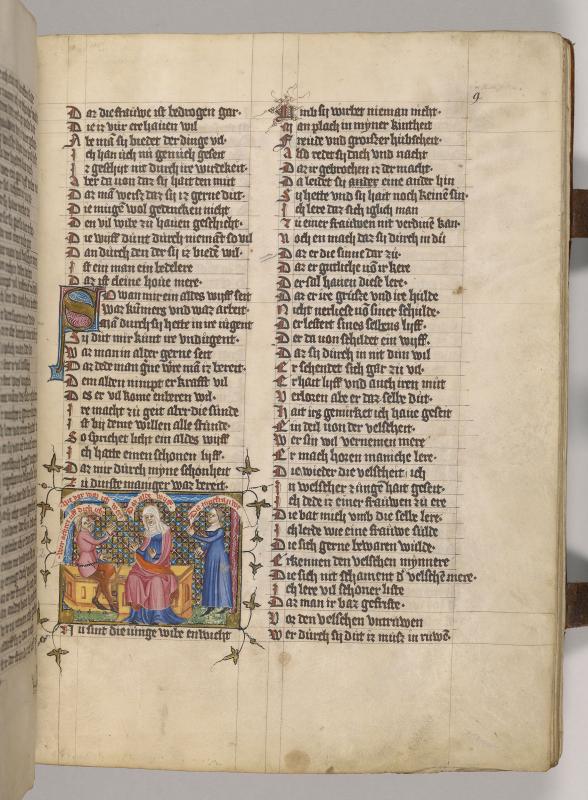 9
Daz die frauwe ist bedrogen gar.
Die iz vür erhauen wil
Abe man sy bieder der dinge vil.
Ich han üch nü genüch geseit
Iz geschyt nit dürch ire wirdekeit.
Aber da von daz sy hait den müt
Daz man weisz daz sy iz gerne düt.
Die mügen wol gedencken nicht
Den vil wibe zü hauen geschicht.
Die wyff dünt dürch nieman so vil
Dan dürch den der sy iz biede wil.
Ist ein man ein bedelere
Daz ist cleine houe mere.
So wan mir ein aldes wyff seit
Waz kümers vnd waz arbeit
Man dürch sy hette in ire iügent
Sy düt mir künt ire vndügent.
Waz man in alder gerne seit
Daz dede man güe wire man iz bereit.
Dem alden nimpt er krafft vil
Des er vil kome enberen wil.
Ire macht zü geit aber die sünde
Ist by deme willen alle stünde.
So sprichet licht ein aldes wyff
Ich hatte einen schonen lyff.
Daz mir dürch myne schönheit
Zü dinste maniger waz bereit.
Nü sint die iünge wibe entwicht
Vmb sy wirbet nieman nicht.
Man plach in myner kintheit
Freüde vnd groszer hübscheit.
Also redet sy dach vnd nacht
Daz ir gebrochen iz der macht.
Da leidet sy ander eine ander hin
Sy hette vnd sy hait noch keinē sin.
Ich lere daz sich iglich man
Zü einer frauwen nit verdinē kan.
Noch en mach daz sy dürch in dü
Daz er die sinne dar zü.
Daz er gütliche vō ir kere
Der sal hauen diese lere.
Daz er ire grüsze vnd ire hülde
Nicht verliese vō siner schülde.
Der lestert sines selbens lyff.
Der da von schildet ein wyff.
Daz sy dürch in nit dün wil
Er schendet sich gar zü vil.
Er hait lyff vnd auch iren müt
Verlozen abe er daz selbe düt.
Hait irs gemircket ich haue geseit
Ein deil von der velscheit.
Wer sin wil vernemen mere
Er mach hozen maniche lere.
Die wieder die velscheit ich
In velscher zünge hait geseit.
Ich dede iz einer frauwen zü ere
Die bat mich vmb die selbe lere.
Ich lerde wie eine frauwe sülde
Die sich gerne bewaren wülde.
Erkennen den velschen mynnere
Die sich nit schament d' velschē mere.
Ich lere vil schöner liste
Daz man ir vaz gefriste.
Vaz den velschen vntruwen
Wer dürch sy düt iz müsz in rüwē.